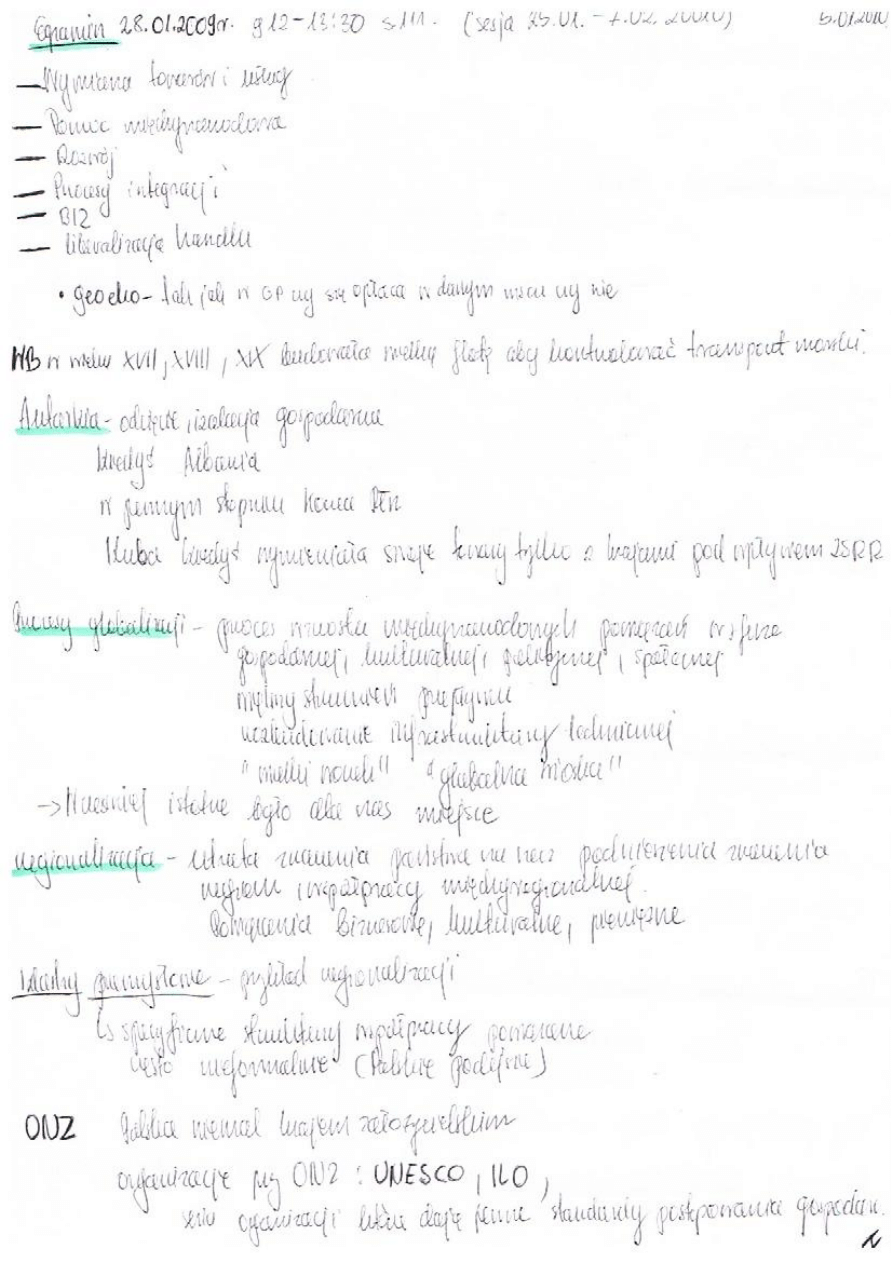 Egzamin 28.01.2009r. g 12-13:30 s.111. (sesja 25.01. - 7.02. 20010) 5.01.2010
— Wymiana towarów i usług
— Pomoc międzynarodowa
— Rozwój
— Procesy integracji
— BIZ
— liberalizacja handlu
• geoeko- tak jak w GP czy się opłaca w danym czy nie
WB w wieku XVII, XVIII, XIX budowała wielką flotę aby kontrolować transport morski.
Autarkia - odcięcie, izolacja gospodarcza
kiedyś Albania
w pewnym stopniu Korea Płn
Kuba kiedyś wymieniała swoje towary tylko z krajami pod wpływem ZSRR
Procesy globalizacji - proces wzrostu międzynarodowych powiązań w sferze
gospodarczej, kulturalnej, politycznej, społecznej
wolny strumień przepływu
uzbudowanie infrastruktury technicznej
"wielki" "globalna wioska"
-> Wcześniej istotne było dla nas miejsce
regionalizacja - utrata znaczenia państwa na rzecz podniesienia znaczenia
regionu i współpracy międzyregionalnej.
Powiązania biznesowe, kulturalne, pieniężne
klastry przemysłowe - przykład regionalizacji
↳ specyficzne struktury współpracy powiązane
często nieformalne (Polskie podejście)
ONZ Polska niemal krajem założycielskim
organizacje przy ONZ : UNESCO, ILO,
organizacji która daje pewne standardy postępowania gospodar.